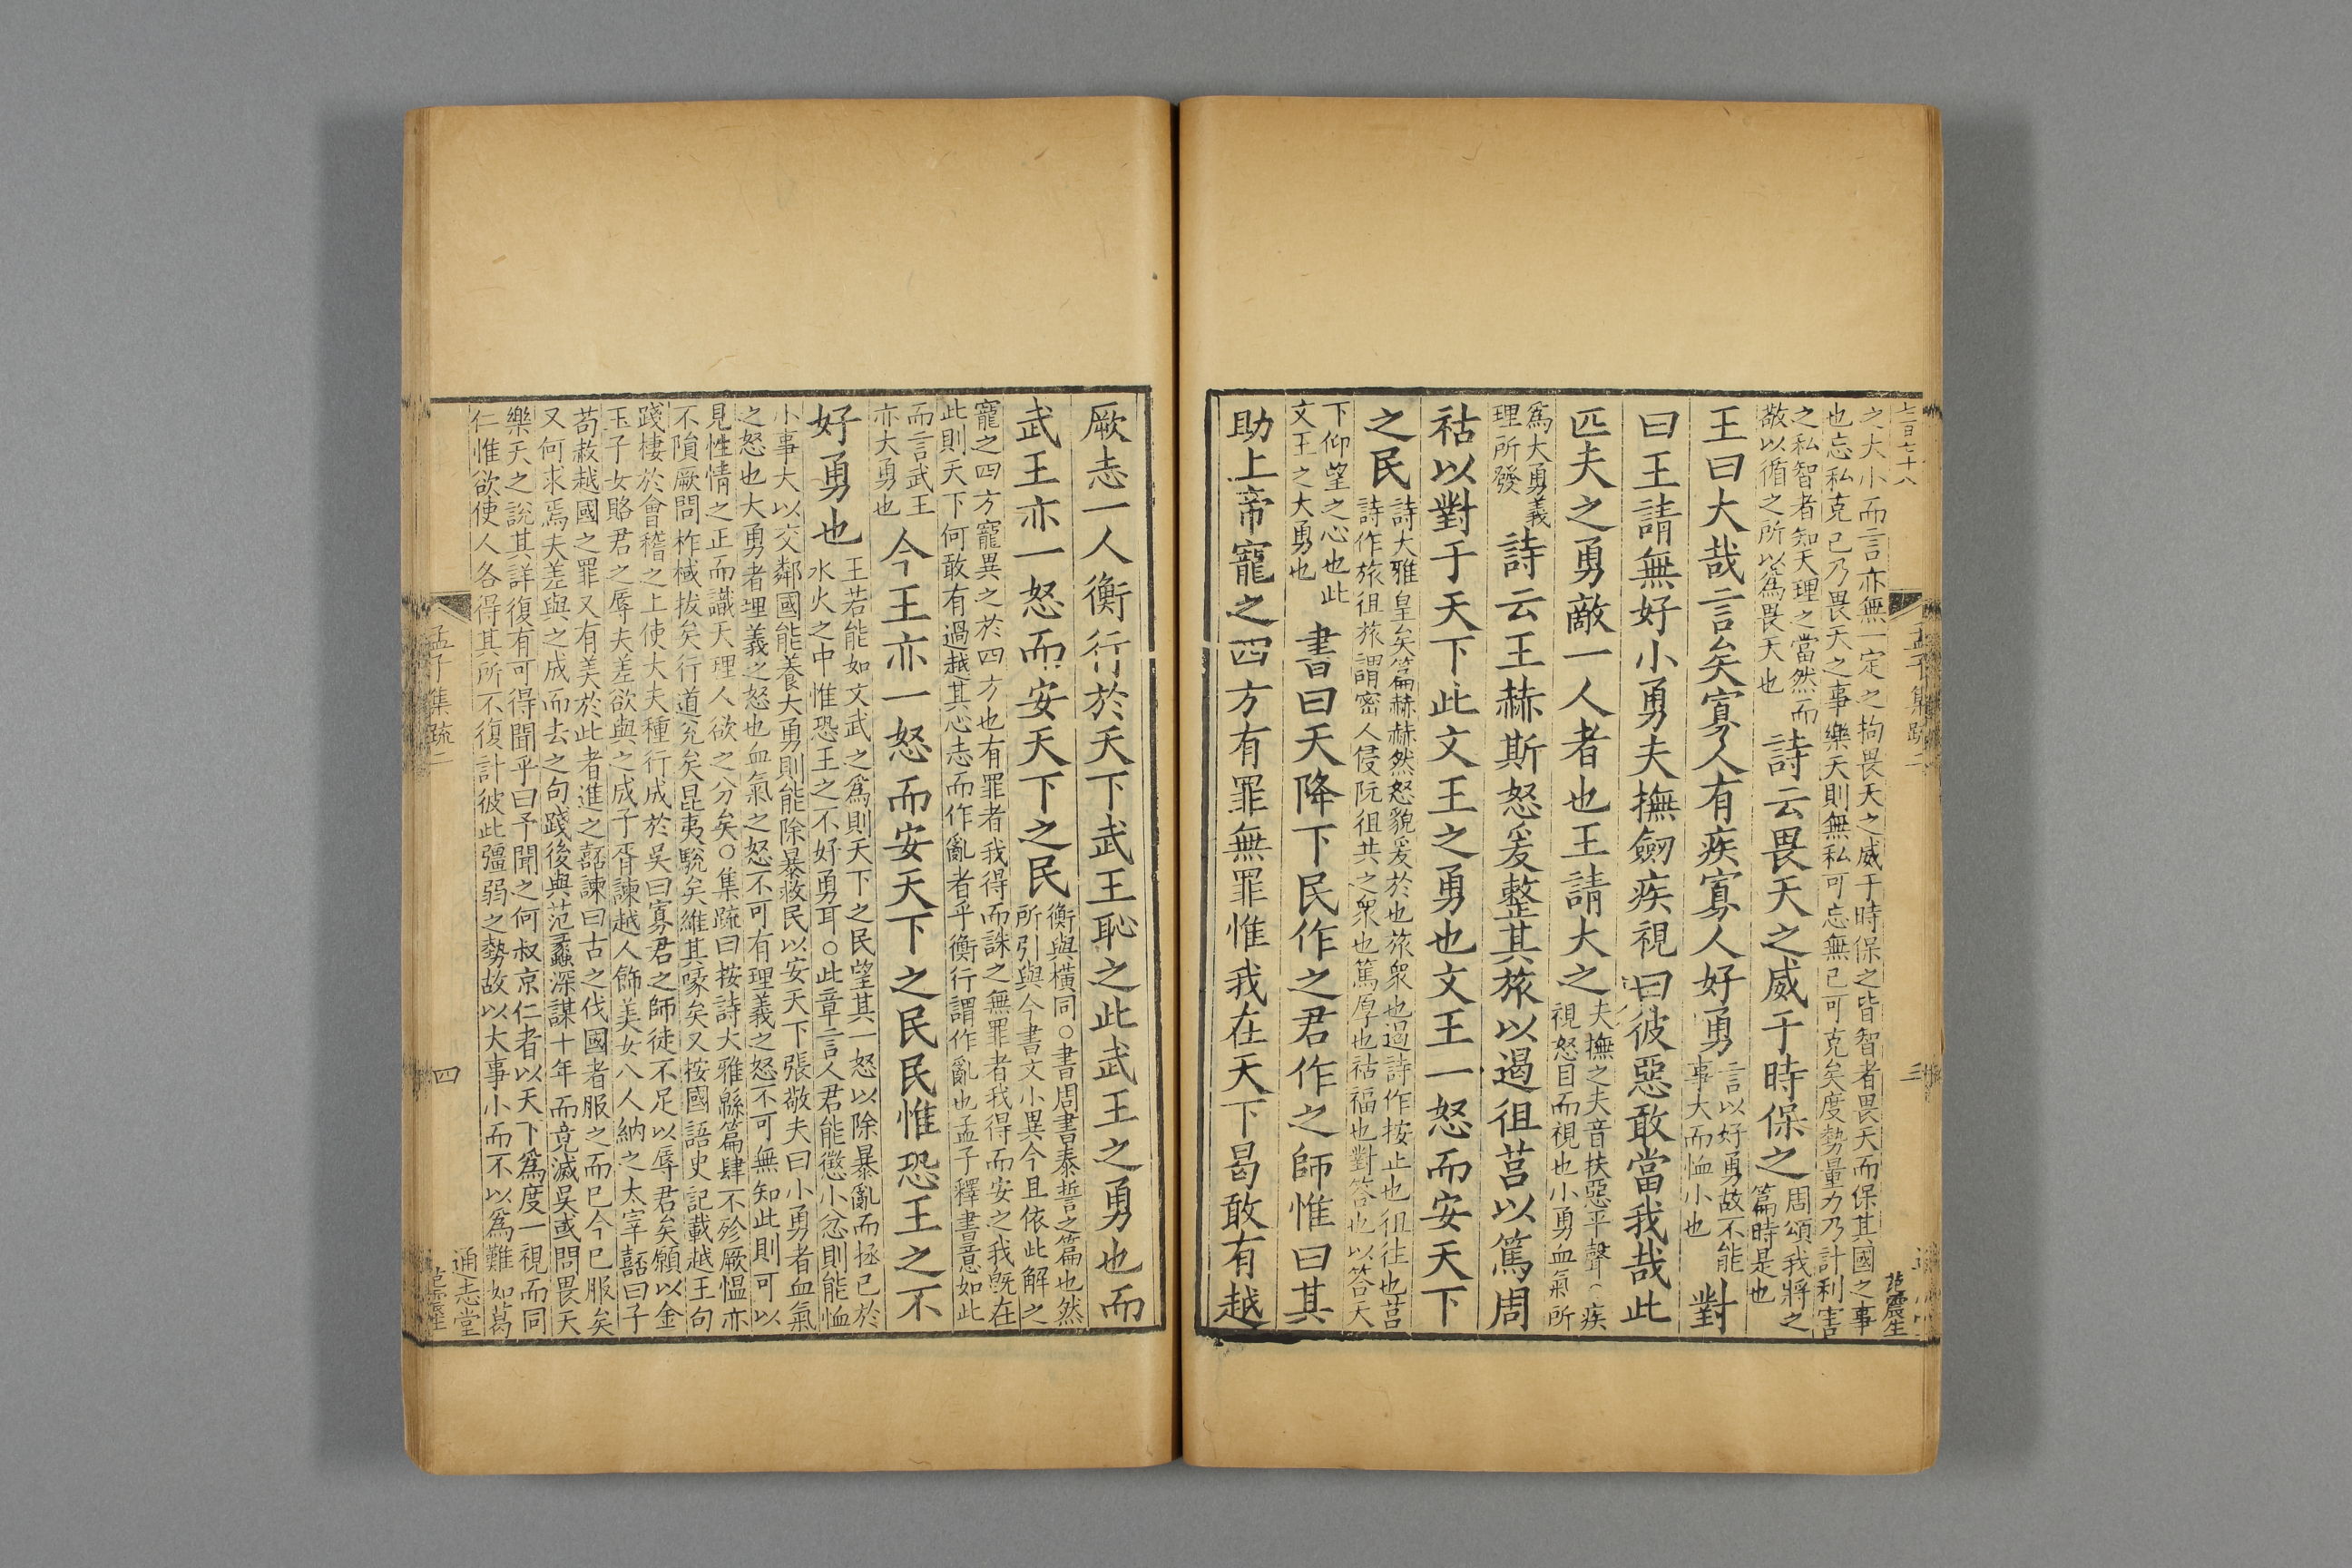 七百七十八
之大小而言亦無一定之拘畏天之威于時保之皆智者畏天而保其國之事
也忘私克己乃畏天之事樂天則無私可忘無己可克矣度勢量力乃計利害
之私智者知天理之當然而
敬以循之所以為畏天也
詩云畏天之威于時保之
周頌我將之
篇時是也
王曰大哉言矣寡人有疾寡人好勇
言以好勇故不能
事大而恤小也
對
曰王請無好小勇夫撫劒疾視曰彼惡敢當我哉此
匹夫之勇敵一人者也王請大之
夫撫之夫音扶惡平聲○疾
視怒目而視也小勇血氣所
為大勇義
理所發
詩云王赫斯怒爰整其旅以遏徂莒以篤周
祜以對于天下此文王之勇也文王一怒而安天下
之民
詩大雅皇矣篇赫赫然怒貌爰於也旅衆也遏詩作按止也徂往也莒
詩作旅徂旅謂密人侵阮徂共之衆也篤厚也祜福也對答也以答天
下仰望之心也此
文王之大勇也
書曰天降下民作之君作之師惟曰其
助上帝寵之四方有罪無罪惟我在天下曷敢有越
孟子集疏二
三
范震生
厥志一人衡行於天下武王恥之此武王之勇也而
武王亦一怒而安天下之民
衡與橫同○書周書泰誓之篇也然
所引與今書文小異今且依此解之
寵之四方寵異之於四方也有罪者我得而誅之無罪者我得而安之我旣在
此則天下何敢有過越其心志而作亂者乎衡行謂作亂也孟子釋書意如此
而言武王
亦大勇也
今王亦一怒而安天下之民民惟恐王之不
好勇也
王若能如文武之為則天下之民望其一怒以除暴亂而拯己於
水火之中惟恐王之不好勇耳○此章言人君能懲小忿則能恤
小事大以交鄰國能養大勇則能除暴救民以安天下張敬夫曰小勇者血氣
之怒也大勇者理義之怒也血氣之怒不可有理義之怒不可無知此則可以
見性情之正而識天理人欲之分矣○集疏曰按詩大雅緜篇肆不殄厥慍亦
不隕厥問柞棫拔矣行道兌矣昆夷駾矣維其喙矣又按國語史記載越王句
踐棲於會稽之上使大夫種行成於吳曰寡君之師徒不足以辱君矣願以金
玉子女賂君之辱夫差欲與之成子胥諫越人飾美女八人納之太宰嚭曰子
苟赦越國之罪又有美於此者進之嚭諫曰古之伐國者服之而已今已服矣
又何求焉夫差與之成而去之句踐後與范蠡深謀十年而竟滅吳或問畏天
樂天之說其詳復有可得聞乎曰予聞之何叔京仁者以天下為度一視而同
仁惟欲使人各得其所不復計彼此彊弱之勢故以大事小而不以為難如葛
孟子集疏二
四
通志堂